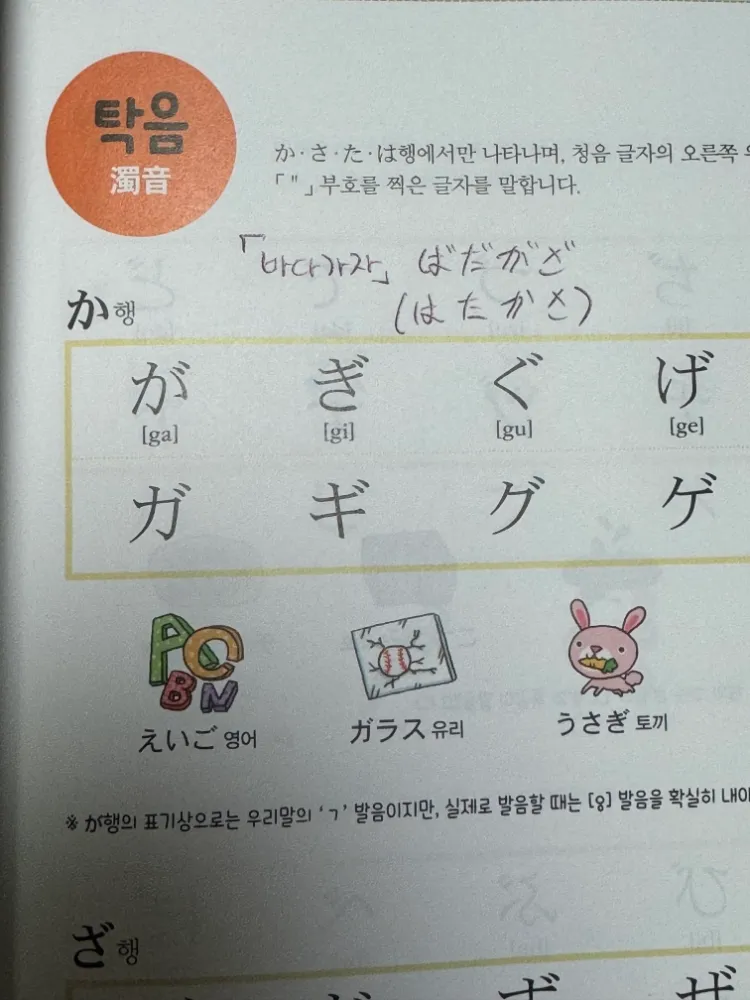 탁음
濁音
か·さ·た·は행에서만 나타나며, 청음 글자의 오른쪽
「"」부호를 찍은 글자를 말합니다.
「바다가자」 ばだがざ
(はたかさ)
か행
が ぎ ぐ げ
[ga] [gi] [gu] [ge]
ガ ギ グ ゲ
A C B N
えいご 영어 ガラス 유리 うさぎ 토끼
※ が행의 표기상으로는 우리말의 'ㄱ' 발음이지만, 실제로 발음할 때는 [g] 발음을 확실히 내야
ざ행